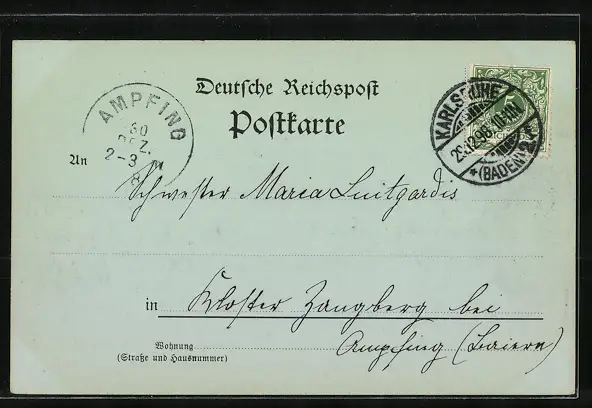 Deutsche Reichspost
Postkarte
AMPFING
30
DEZ.
2-3
KARLSRUHE
29.12.98.10-11N
*(BADEN)2*
An Schwester Maria Luitgardis
in Kloster Zangberg bei
Wohnung Ampfing (Baiern)
(Straße und Hausnummer)